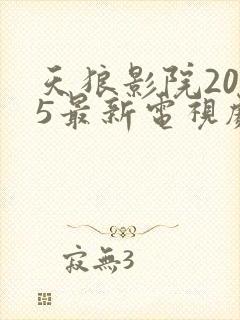 天狼影院20
5最新電視
寂無3